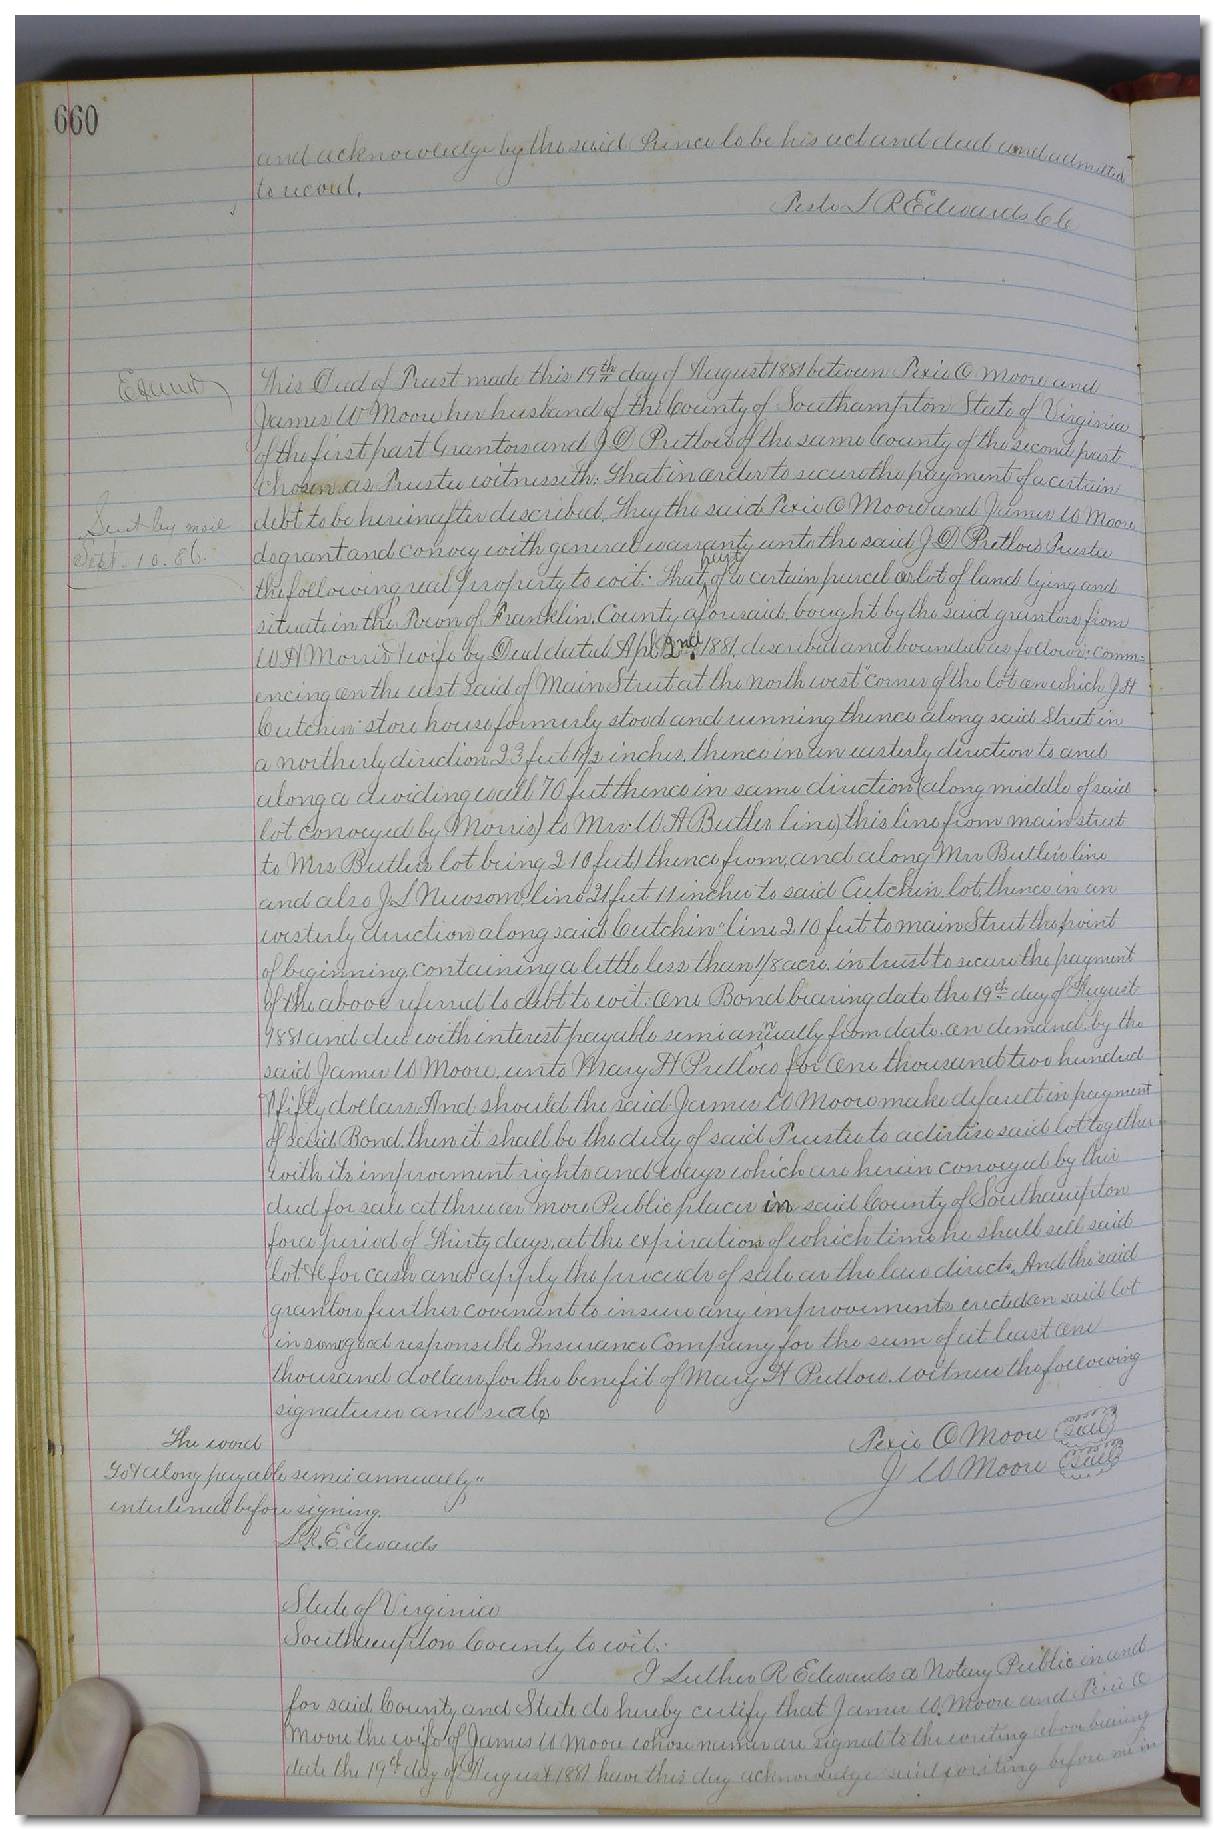 660
and acknowledge by the said Prince to be his act and deed and admitted
to record.
Teste L R Edwards CC
Examd
This Deed of Trust made this 19th day of August 1881 between Pexie O Moore and
James W Moore her husband of the County of Southampton State of Virginia
of the first part Grantors and J D Pretlow of the same County of the second part
chosen as Trustee witnesseth: That in order to secure the payment of a certain
Sent by mail
debt to be hereinafter described, They the said Pexie O Moore and James W Moore
Sept. 10. 86.
do grant and convey with general warranty unto the said J D Pretlow Trustee
the following real property to wit: That part of a certain parcel or lot of land lying and
situate in the Town of Franklin, County aforesaid, bought by the said grantors from
W H Morris & wife by Deed dated Apl 2nd 1881, described and bounded as follows: Comm-
encing on the east said of Main Street at the north west corner of the lot on which J H
Cutchin store house formerly stood and running thence along said Street in
a northerly direction 23 feet 1 1/2 inches, thence in an easterly direction to and
along a dividing wall 70 feet thence in same direction (along middle of said
lot conveyed by Morris) to Mrs W A Butler line) this line from main street
to Mrs Butler's lot being 210 feet) thence from, and along Mrs Butler's line
and also J L Newsom line 21 feet 11 inches to said Cutchin lot, thence in an
westerly direction along said Cutchin line 210 feet to main Street the point
of beginning, containing a little less than 1/8 acre. in trust to secure the payment
of the above referred to debt to wit: one Bond bearing date the 19th day of August
1881 and due with interest payable semi annually from date on demand by the
said James W Moore. unto Mary H Pretlow for One thousand two hundred
& fifty dollars. And should the said James W Moore make default in payment
of said Bond, then it shall be the duty of said Trustee to advertise said lot together
with its improvement rights and ways which are herein conveyed by this
deed for sale at three or more Public places in said County of Southampton
for a period of Thirty days, at the expiration of which time he shall sell said
lot &c for cash and apply the proceeds of sale as the law directs. And the said
grantors further covenant to insure any improvements erected on said lot
in some good responsible Insurance Company for the sum of at least one
thousand dollars for the benefit of Mary H Pretlow. witness the following
signatures and seals
Pexie O Moore Seal
J W Moore Seal
The word
along payable semi annually"
interlined before signing.
L. R. Edwards
State of Virginia
Southampton County to wit:
I Luther R Edwards a Notary Public in and
for said County and State do hereby certify that James W. Moore and Pexie O
Moore the wife of James W Moore whose names are signed to the writing above bearing
date the 19th day of August 1881 have this day acknowledge said writing before me in